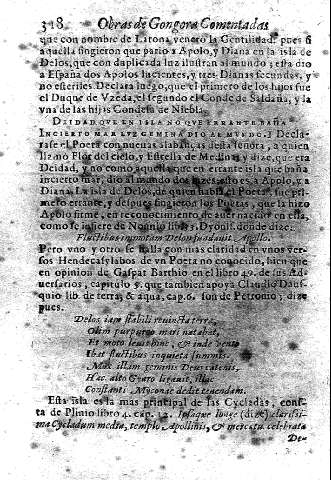 318 Obras de Gongora Comentadas
que con nombre de Latona, venerò la Gentilidad: pues si
aquella fingieron que pario a Apolo, y Diana en la isla de
Delos, que con duplicada luz ilustran al mundo; esta dio
a España dos Apolos lucientes, y tres Dianas fecundas, y
no esteriles Declara luego, que el primero de los hijos fue
el Duque de Vzeda, el segundo el Conde de Saldaña, y la
vna de las hijas Condesa de Niebla.
DEIDAD QVE EN ISLA NO QVE ERRANTE BAÑA
INCIERTO MAR LVZ GEMINA DIO AL MVNDO.
rase el Poeta con nuevas alabanças desta señora, a quien
llamò Flor del cielo, y Estrella de Medina; y dize, que era
Deidad, y no como aquella que en errante isla que baña
incierto mar, dio al mundo dos luzes a Apolo, y a
Diana. La isla de Delos, de quien habla el Poeta, fue pri
mero errante, y despues fingieron los Poetas, que la hizo
Apolo firme, en reconocimiento de auer nacido en ella,
como se infiere de Nonnio libro Dyonis. donde dize:
Fluctibus immotam Delon Apollo.
Pero vno y otro se halla con mas claridad en vnos ver-
sos Hendecasylabos de vn Poeta no conocido, bien que
en opinion de Gaspar Barthio en el libro 49. de sus Ad-
uersarios, capitulo y que tambien apoya Claudio Daus-
quio lib. de terra, & aqua, cap. 6. son de Petronio; dize
pues.
Delos iam stabili reuincta terra,
Olim purpureo mari natabat,
Et moto leuis hinc, & inde vento
Ibat fluctibus inquieta summis.
Mox illam geminis Deus catenis,
Hac alta Gyaro ligauit, illac
Constanti Mycono dedit tenendam.
Esta isla es la mas principal de las Cycladas, cons-
ta de Plinio libro 4. cap. 12. Ipsaque longe (dize) clarissi-
ma Cycladum media, templo Apollinis, & mercatu celebrata
De-